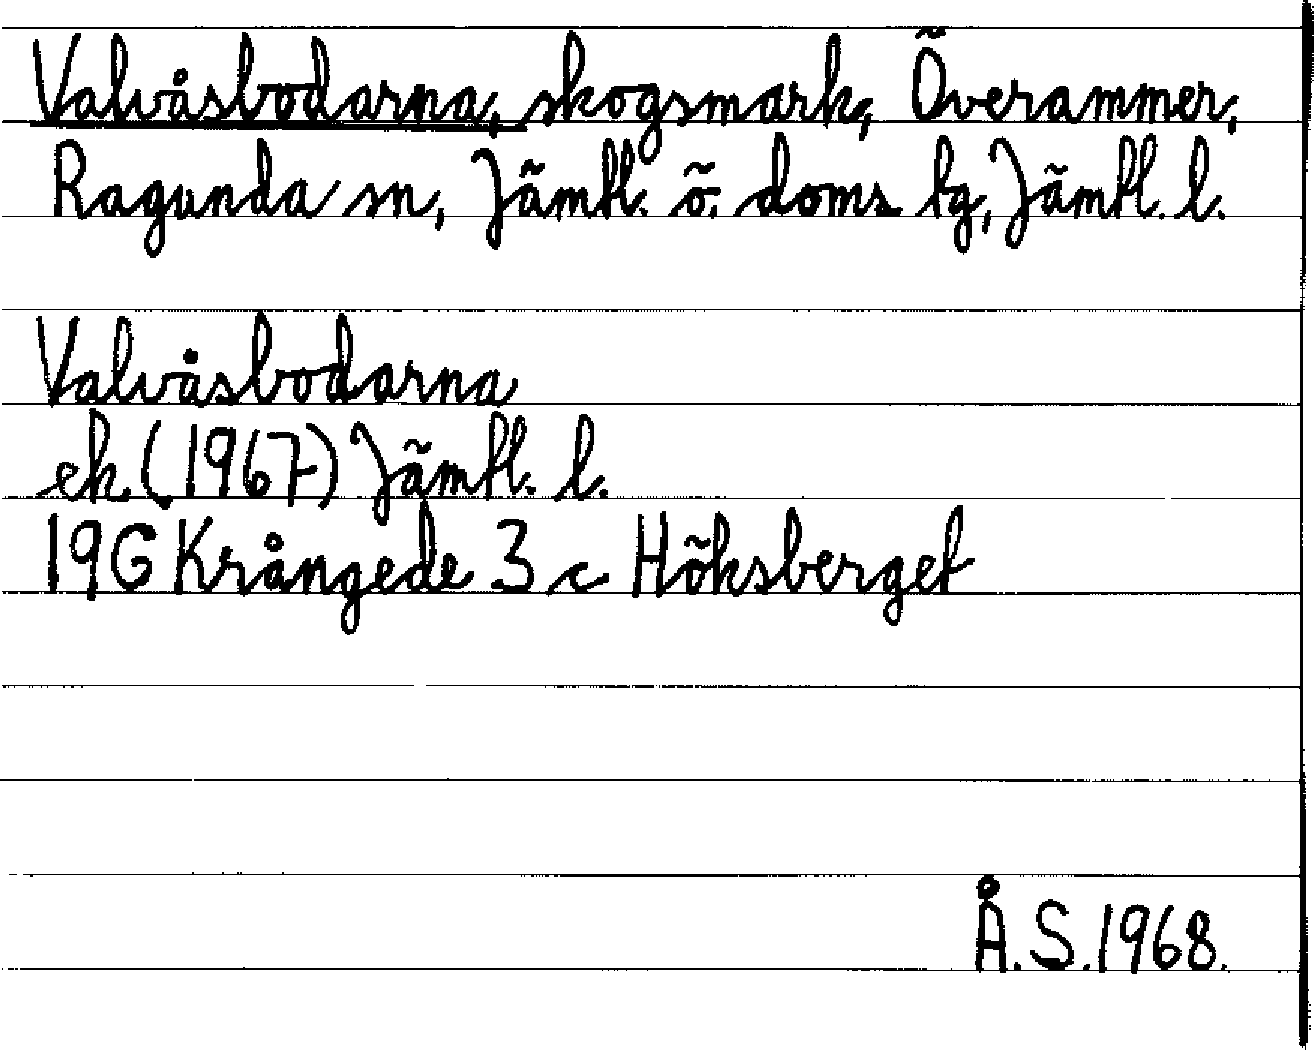 Valvåsbodarna, skogsmark, Överammer,
Ragunda sn, Jämtl. ö. doms tg, Jämtl. l.
Valvåsbodarna
ek (1967) Jämtl. l.
19G Krångede 3 c Höksberget
Å.S.1968.